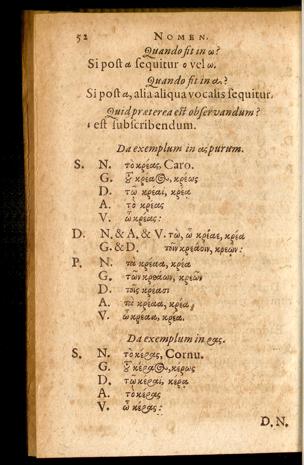 52 NOMEN.
Quando fit in ω?
Si post α sequitur ο vel ω.
Quando fit in α?
Si post α, alia aliqua vocalis sequitur.
Quid præterea est observandum?
ι est subscribendum.
Da exemplum in ας purum.
S. N. τὸ κρέας, Caro.
G. τοῦ κρέατος, κρέως
D. τῷ κρέαϊ, κρέᾳ
A. τὸ κρέας
V. ὦ κρέας:
D. N. & A. & V. τὼ, ὦ κρέαε, κρέα
G. & D. τοῖν κρεάοιν, κρεῶν:
P. N. τὰ κρέαα, κρέα
G. τῶν κρεάων, κρεῶν
D. τοῖς κρέασι
A. τὰ κρέαα, κρέα,
V. ὦ κρέαα, κρέα.
Da exemplum in ρας.
S. N. τὸ κέρας, Cornu.
G. τοῦ κέρατος, κέρως
D. τῷ κέραϊ, κέρᾳ
A. τὸ κέρας
V. ὦ κέρας:
D. N.